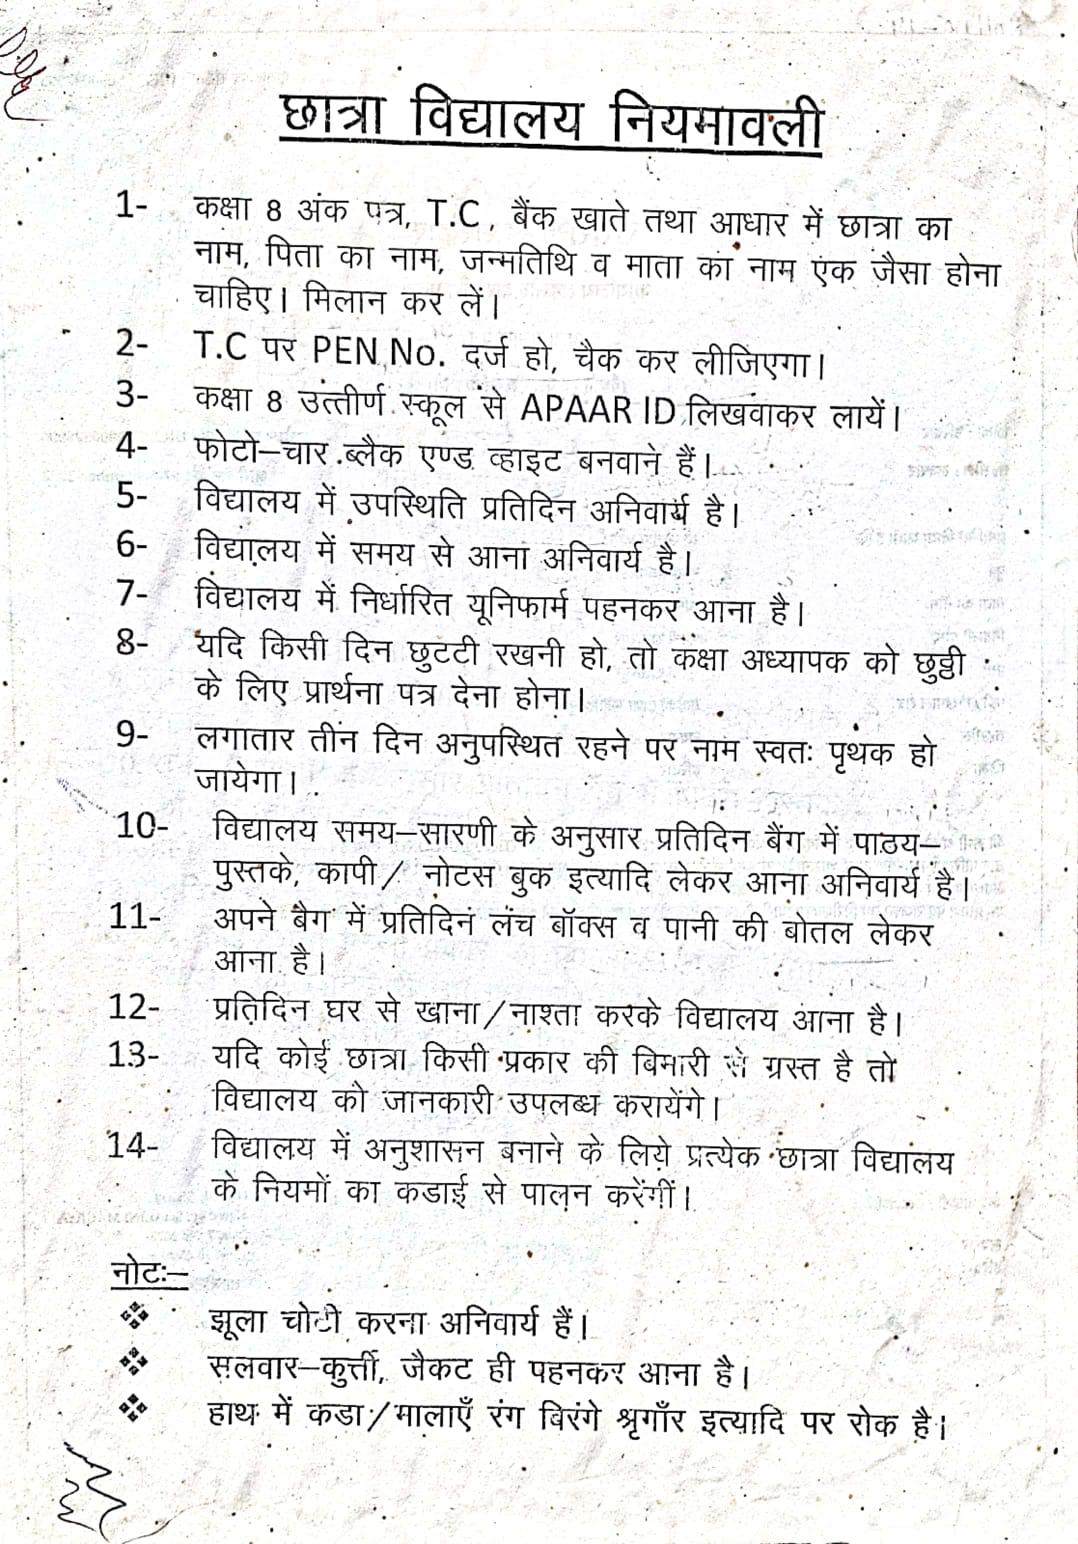 छात्रा विद्यालय नियमावली
1- कक्षा 8 अंक पत्र, T.C, बैंक खाते तथा आधार में छात्रा का
नाम, पिता का नाम, जन्मतिथि व माता का नाम एक जैसा होना
चाहिए। मिलान कर लें।
2- T.C पर PEN No. दर्ज हो, चैक कर लीजिएगा।
3- कक्षा 8 उत्तीर्ण स्कूल से APAAR ID लिखवाकर लायें।
4- फोटो–चार ब्लैक एण्ड व्हाइट बनवाने हैं।
5- विद्यालय में उपस्थिति प्रतिदिन अनिवार्य है।
6- विद्यालय में समय से आना अनिवार्य है।
7- विद्यालय में निर्धारित यूनिफार्म पहनकर आना है।
8- यदि किसी दिन छुटटी रखनी हो, तो कक्षा अध्यापक को छुट्टी
के लिए प्रार्थना पत्र देना होना।
9- लगातार तीन दिन अनुपस्थित रहने पर नाम स्वतः पृथक हो
जायेगा।
10- विद्यालय समय–सारणी के अनुसार प्रतिदिन बैंग में पाठय–
पुस्तके, कापी/ नोटस बुक इत्यादि लेकर आना अनिवार्य है।
11- अपने बैग में प्रतिदिन लंच बॉक्स व पानी की बोतल लेकर
आना है।
12- प्रतिदिन घर से खाना/नाश्ता करके विद्यालय आना है।
13- यदि कोई छात्रा किसी प्रकार की बिमारी से ग्रस्त है तो
विद्यालय को जानकारी उपलब्ध करायेंगे।
14- विद्यालय में अनुशासन बनाने के लिये प्रत्येक छात्रा विद्यालय
के नियमों का कडाई से पालन करेंगीं।
नोटः–
❖ झूला चोटी करना अनिवार्य हैं।
❖ सलवार–कुर्त्ती, जैकट ही पहनकर आना है।
❖ हाथ में कडा/मालाएँ रंग बिरंगे श्रृगाँर इत्यादि पर रोक है।